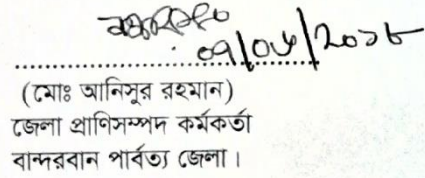 ০৭/০৮/২০১৮
(মোঃ আনিসুর রহমান)
জেলা প্রাণিসম্পদ কর্মকর্তা
বান্দরবান পার্বত্য জেলা।